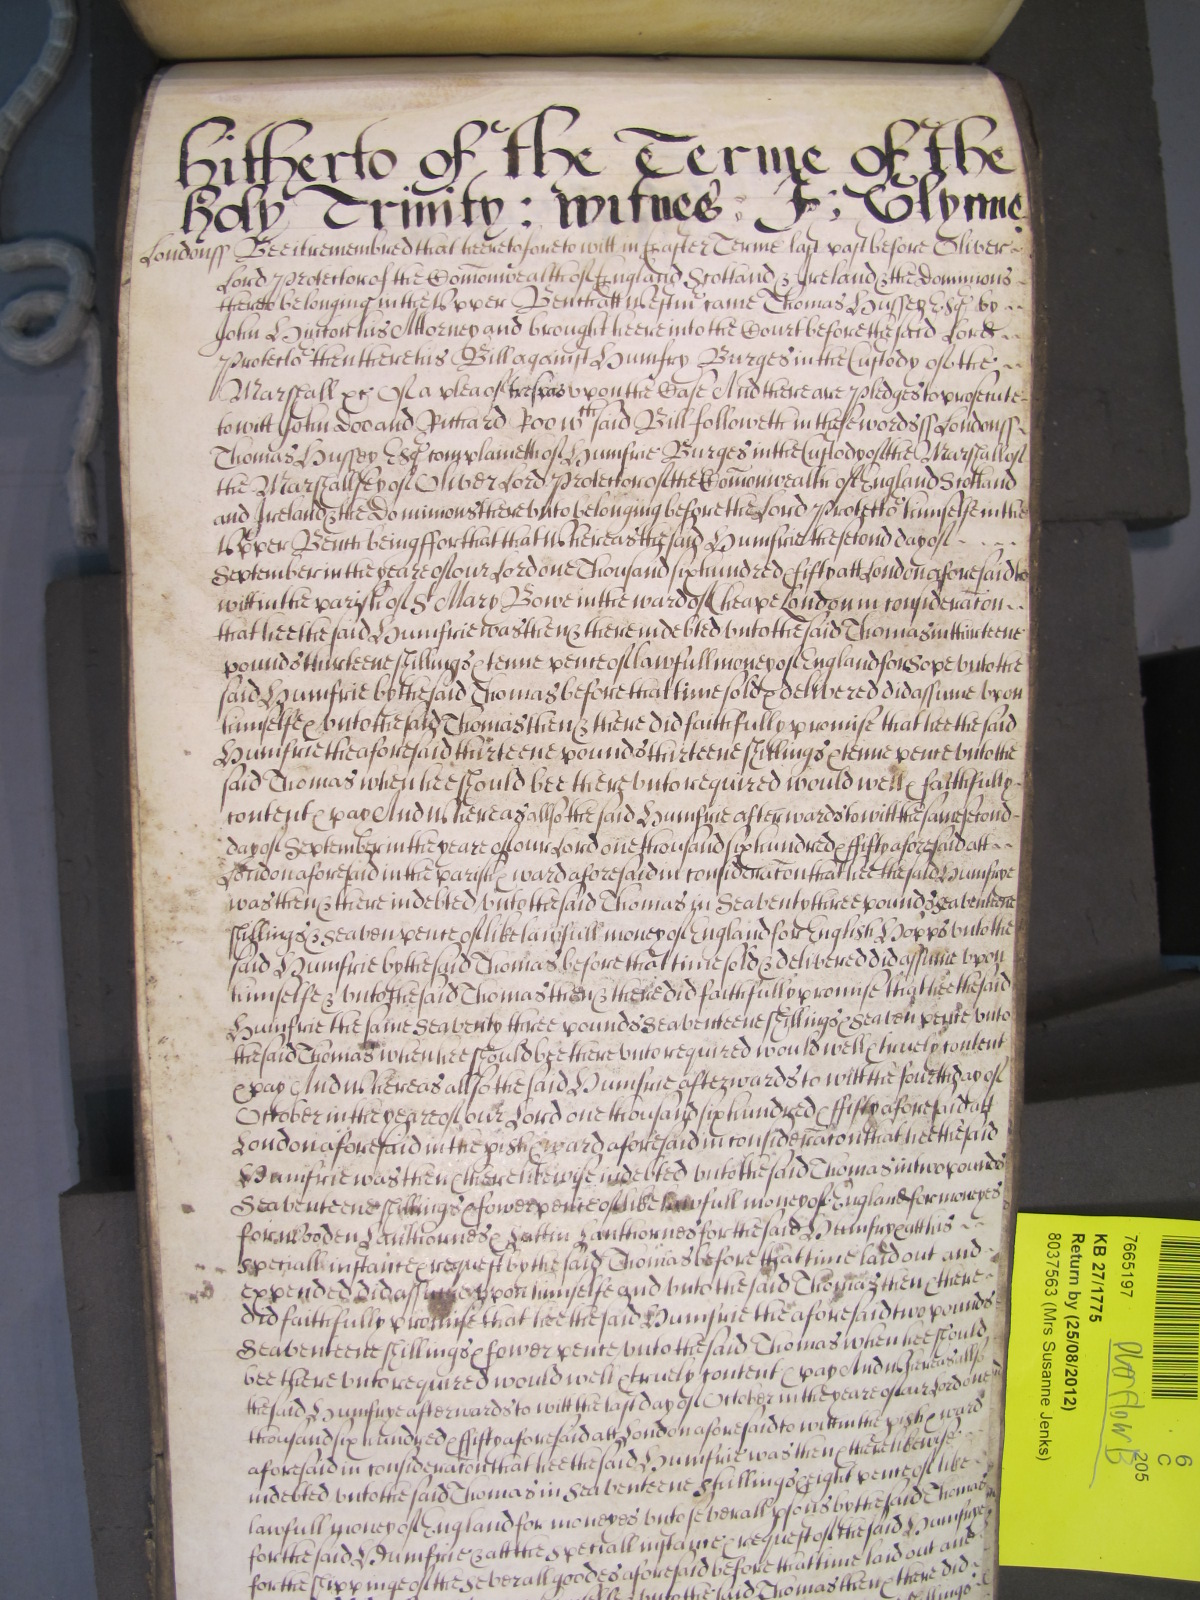 hitherto of the Terme of the
Holy Trinity: witnes: J; Glynne
Londonss Bee it remembred that heeretofore to witt in Easter Terme last past before Oliver
Lord Protector of the Comonwealth of England Scotland & Ireland & the Dominions
thereto belonging in the Upper Bench att Westmr came Thomas Hussey Esqr by
John Hinton his Attorney and brought heere into the Court before the said Lord
Protector then there his Bill against Humfry Burges in the Custody of the
Marshall &c Of a plea of trespas upon the Case And there are Pledges to prosecute
to witt John Doo and Richard Roo wch said Bill followeth in these words ss Londonss
Thomas Hussey Esqr complaineth of Humfrie Burges in the Custody of the Marshall of
the Marshallsey of Oliver Lord Protector of the Comonwealth of England Scotland
and Ireland & the Dominions thereunto belonging before the Lord Protector himselfe in the
Upper Bench being ffor that that Whereas the said Humfrie the second day of
September in the yeare of our Lord one Thousand six hundred & fifty att London aforesaid to
witt in the parish of St Mary Bowe in the ward of Cheape London in consideracon
that hee the said Humfrie was then & there indebted unto the said Thomas in thirteene
pounds thirteene shillings & tenne pence of lawfull money of England for Sope unto the
said Humfrie by the said Thomas before that time sold & delivered did assume upon
himselfe & unto the said Thomas then & there did faithfully promise that hee the said
Humfrie the aforesaid thirteene pounds thirteene shillings & tenne pence unto the
said Thomas when hee should bee thereunto required would well & faithfully
content & pay And Whereas allso the said Humfrie afterwards to witt the same second
day of September in the yeare of our Lord one thousand six hundred & ffifty aforesaid att
London aforesaid in the parish & ward aforesaid in consideracon that hee the said Humfrye
was then & there indebted unto the said Thomas in Seaventy three pounds seaventeene
shillings & seaven pence of like lawfull money of England for English Hopps unto the
said Humfrie by the said Thomas before that time sold & delivered did assume upon
himselfe & unto the said Thomas then & there did faithfully promise that hee the said
Humfrie the same Seaventy three pounds Seaventeene shillings & Seaven pence unto
the said Thomas when hee should bee thereunto required would well & truely content
& pay And Whereas allso the said Humfrie afterwards to witt the fourth day of
October in the yeare of our Lord one thousand six hundred & ffifty aforesaid att
London aforesaid in the pish & ward aforesaid in consideracon that hee the said
Humfrie was then & there likewise indebted unto the said Thomas in two pounds
Seaventeene shillings & fower pence of like lawfull money of England for moneyes
for Wooden Lanthornes & Lattin Lanthornes for the said Humfry & att his
speciall instance & request by the said Thomas before that time laid out and
expended did assume upon himselfe and unto the said Thomas then & there
did faithfully promise that hee the said Humfrie the aforesaid two pounds
Seaventeene shillings & fower pence unto the said Thomas when hee should
bee thereunto required would well & truely content & pay And whereas allso
the said Humfrye afterwards to witt the last day of October in the yeare of our Lord one
thousand six hundred & ffifty aforesaid att London aforesaid to witt in the pish & ward
aforesaid in consideracon that hee the said Humfrie was then & there likewise
indebted unto the said Thomas in Seaventeene shillings & eight pence of like
lawfull money of England for moneyes unto severall psons by the said Thomas
for the said Humfrie & att the speciall instance & request of the said Humfrye
for the shippinge of the severall goodes aforesaid before that time laid out and
unto the said Thomas then & there did
6
C
205
7665197
KB 27/1775
Return by (25/08/2012)
8037563 (Mrs Susanne Jenks)